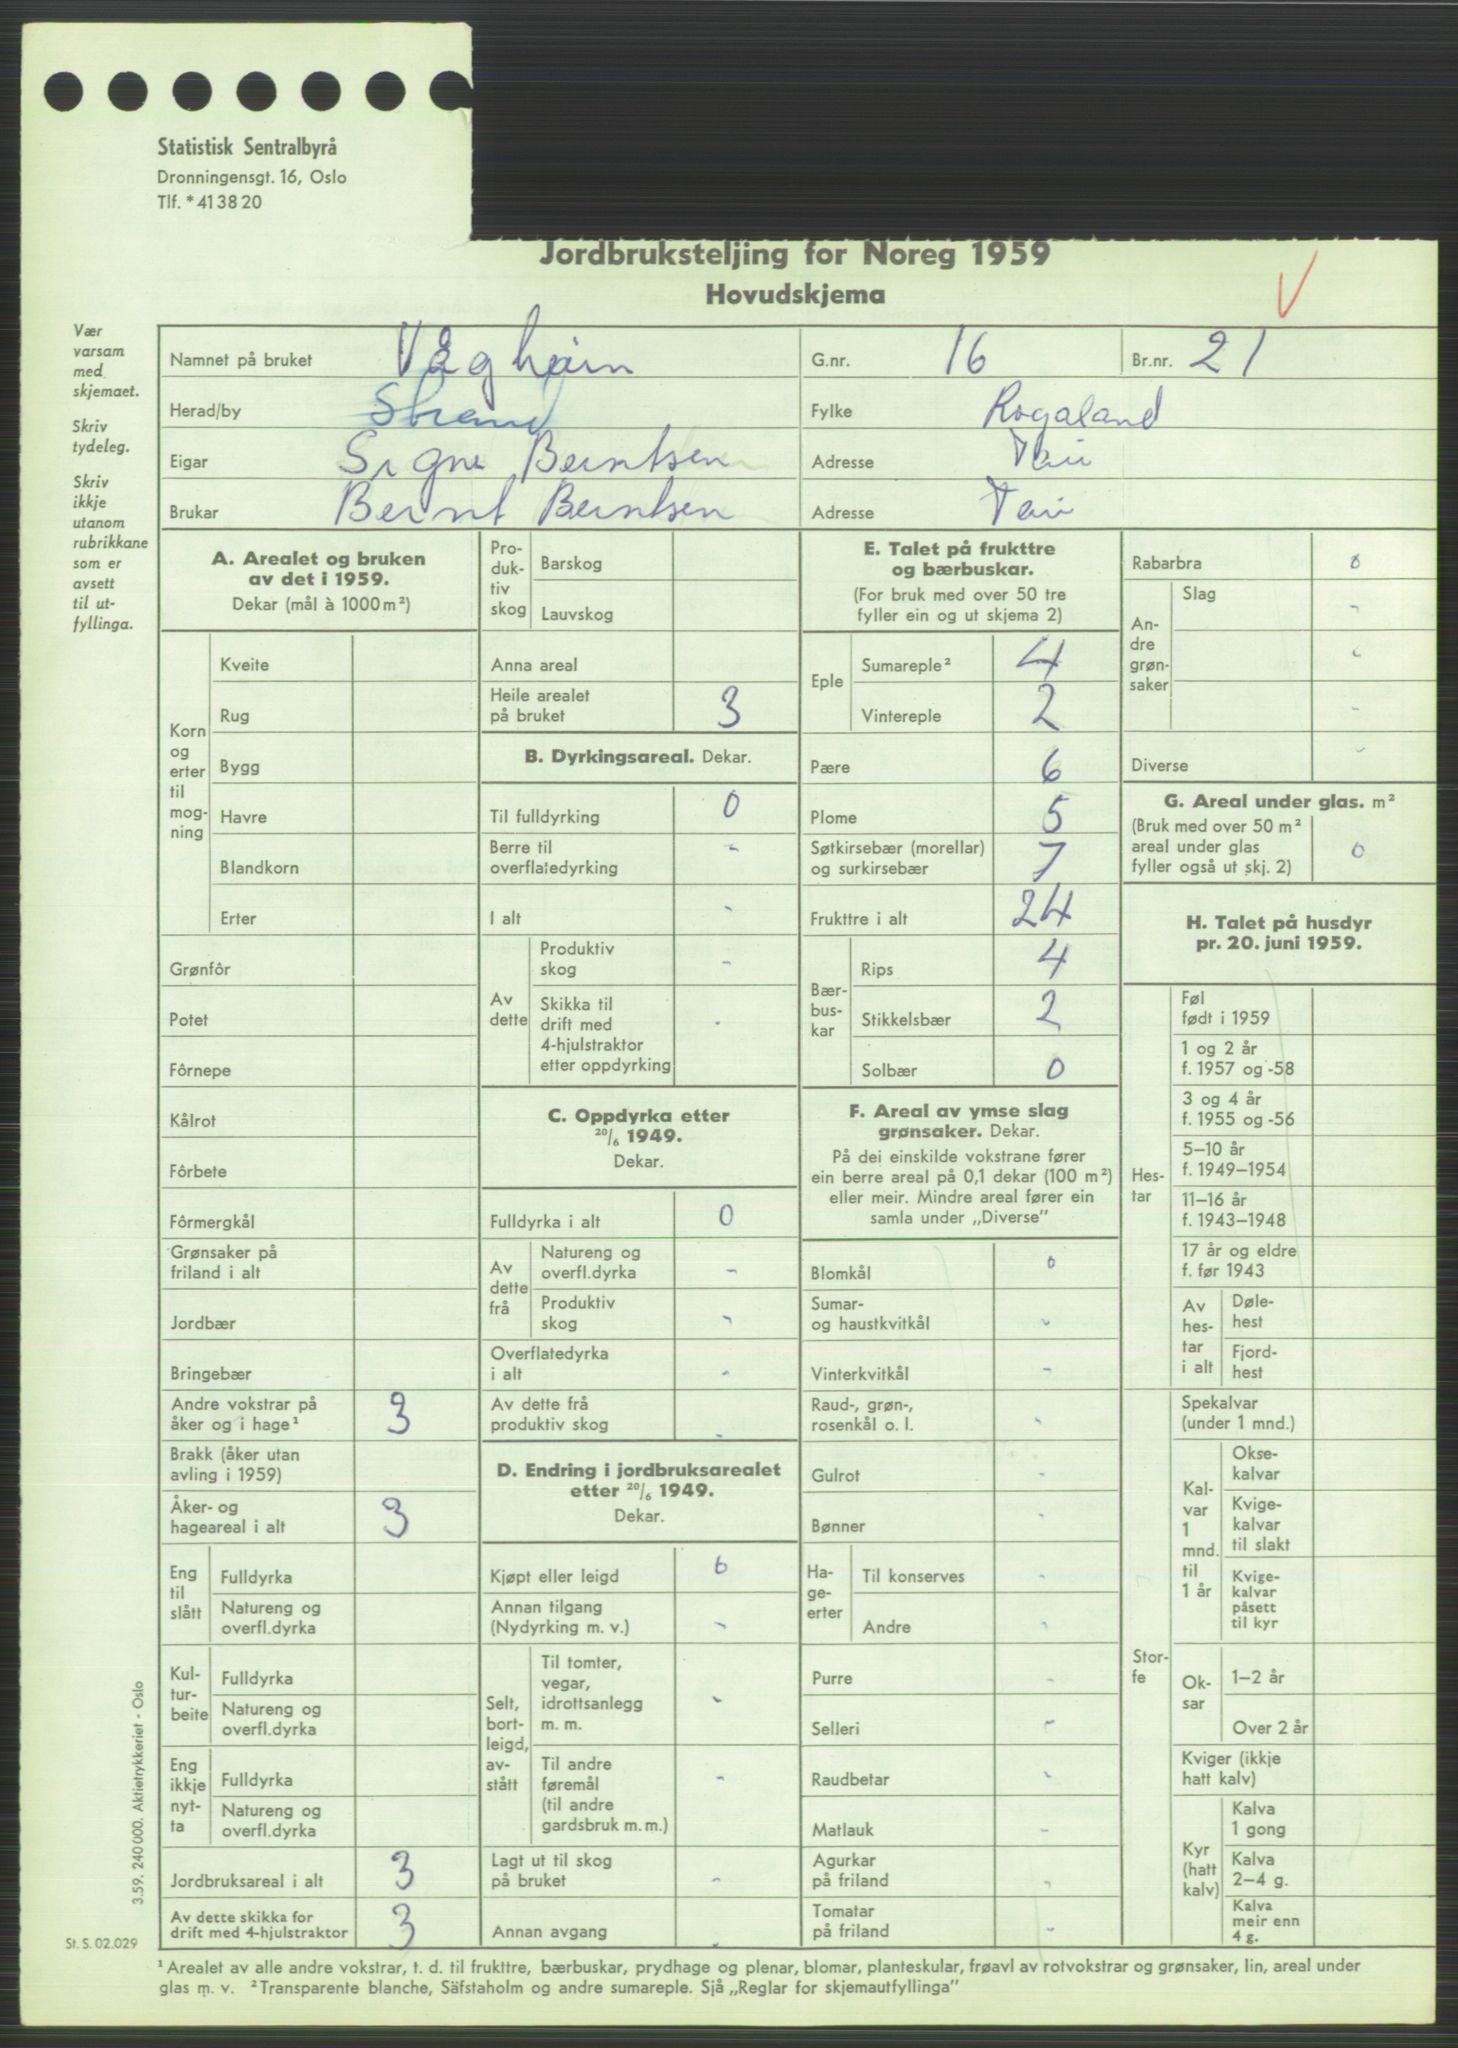 Statistisk Sentralbyrå
Dronningensgt. 16, Oslo
Tlf. * 41 38 20
Jordbruksteljing for Noreg 1959
Hovudskjema
Vær
varsam
med
skjemaet.
Skriv
tydeleg.
Skriv
ikkje
utanom
rubrikkane
som er
avsett
til ut-
fyllinga.
Namnet på bruket Vågheim G.nr. 16 Br.nr. 21
Herad/by Strand Fylke Rogaland
Eigar Signe Berntsen Adresse Tau
Brukar Bernt Berntsen Adresse Tau
A. Arealet og bruken
av det i 1959.
Dekar (mål à 1000 m²)
Korn
og
erter
til
mog-
ning
Kveite
Rug
Bygg
Havre
Blandkorn
Erter
Grønfôr
Potet
Fôrnepe
Kålrot
Fôrbete
Fôrmergkål
Grønsaker på
friland i alt
Jordbær
Bringebær
Andre vokstrar på
åker og i hage¹ 3
Brakk (åker utan
avling i 1959)
Åker- og
hageareal i alt 3
Eng
til
slått
Fulldyrka
Natureng og
overfl.dyrka
Kul-
tur-
beite
Fulldyrka
Natureng og
overfl.dyrka
Eng
ikkje
nyt-
ta
Fulldyrka
Natureng og
overfl.dyrka
Jordbruksareal i alt 3
Av dette skikka for
drift med 4-hjulstraktor 3
Pro-
duk-
tiv
skog
Barskog
Lauvskog
Anna areal
Heile arealet
på bruket 3
B. Dyrkingsareal. Dekar.
Til fulldyrking 0
Berre til
overflatedyrking -
I alt -
Av
dette
Produktiv
skog -
Skikka til
drift med
4-hjulstraktor
etter oppdyrking -
C. Oppdyrka etter
20/6 1949.
Dekar.
Fulldyrka i alt 0
Av
dette
frå
Natureng og
overfl.dyrka -
Produktiv
skog -
Overflatedyrka
i alt -
Av dette frå
produktiv skog -
D. Endring i jordbruksarealet
etter 20/6 1949.
Dekar.
Kjøpt eller leigd 0
Annan tilgang
(Nydyrking m. v.) -
Selt,
bort-
leigd,
av-
stått
Til tomter,
vegar,
idrottsanlegg
m. m. -
Til andre
føremål
(til andre
gardsbruk m. m.) -
Lagt ut til skog
på bruket -
Annan avgang -
E. Talet på frukttre
og bærbuskar.
(For bruk med over 50 tre
fyller ein og ut skjema 2)
Eple
Sumareple² 4
Vintereple 2
Pære 6
Plome 5
Søtkirsebær (morellar)
og surkirsebær 7
Frukttre i alt 24
Bær-
bus-
kar
Rips 4
Stikkelsbær 2
Solbær 0
F. Areal av ymse slag
grønsaker. Dekar.
På dei einskilde vokstrane fører
ein berre areal på 0,1 dekar (100 m²)
eller meir. Mindre areal fører ein
samla under „Diverse”
Blomkål 0
Sumar-
og haustkvitkål -
Vinterkvitkål -
Raud-, grøn-,
rosenkål o. l. -
Gulrot -
Bønner -
Ha-
ge-
erter
Til konserves -
Andre -
Purre -
Selleri -
Raudbetar -
Matlauk -
Agurkar
på friland -
Tomatar
på friland -
Rabarbra 0
An-
dre
grøn-
saker
Slag
-
-
-
Diverse -
G. Areal under glas. m²
(Bruk med over 50 m²
areal under glas
fyller også ut skj. 2) 0
H. Talet på husdyr
pr. 20. juni 1959.
Hes-
tar
Føl
født i 1959
1 og 2 år
f. 1957 og -58
3 og 4 år
f. 1955 og -56
5–10 år
f. 1949–1954
11–16 år
f. 1943–1948
17 år og eldre
f. før 1943
Av
hes-
tar
i alt
Døle-
hest
Fjord-
hest
Stor-
fe
Spekalvar
(under 1 mnd.)
Kal-
var
1
mnd.
til
1 år
Okse-
kalvar
Kvige-
kalvar
til slakt
Kvige-
kalvar
påsett
til kyr
Ok-
sar
1–2 år
Over 2 år
Kviger (ikkje
hatt kalv)
Kyr
(hatt
kalv)
Kalva
1 gong
Kalva
2–4 g.
Kalva
meir enn
4 g.
3.59. 240 000. Aktietrykkeriet - Oslo
St. S. 02.029
¹ Arealet av alle andre vokstrar, t. d. til frukttre, bærbuskar, prydhage og plenar, blomar, planteskular, frøavl av rotvokstrar og grønsaker, lin, areal under
glas m. v. ² Transparente blanche, Säfstaholm og andre sumareple. Sjå „Reglar for skjemautfyllinga”